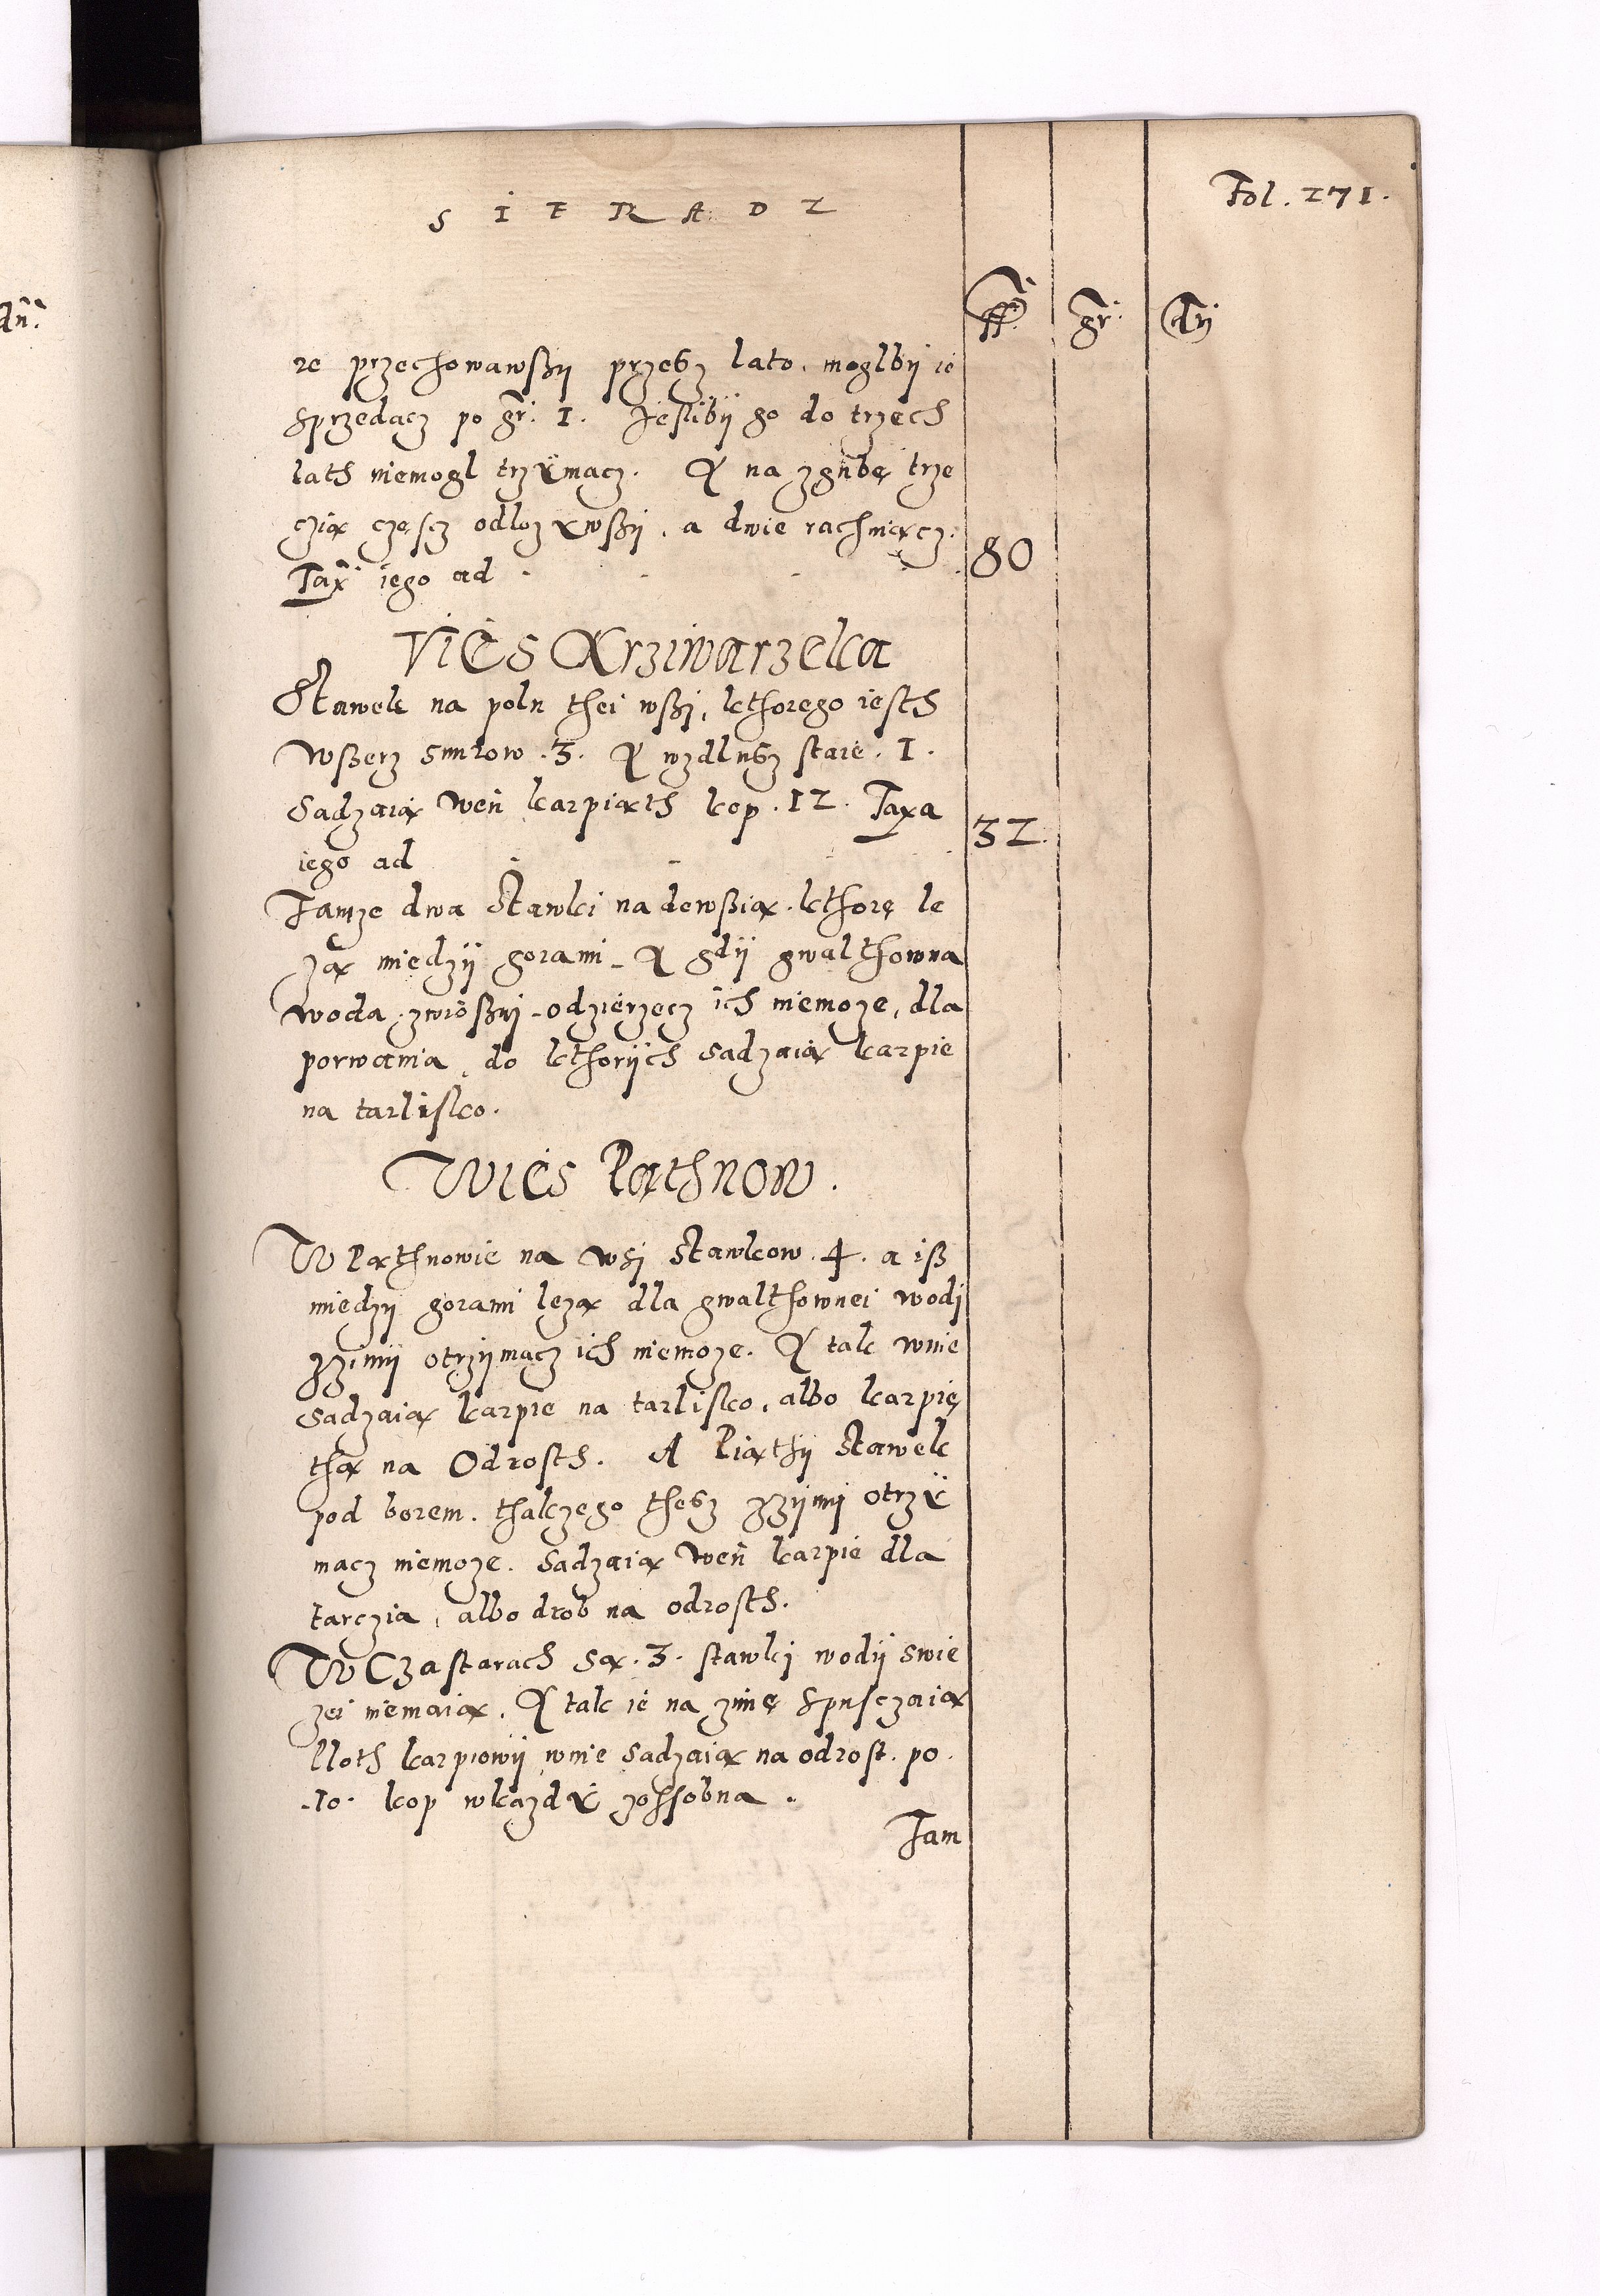 SIERADZ
Fol. 271.
ff. gr. dn
dñ.
re przechowawßy przeßz lato, moglby ie
sprzedacz po gr. 1. Jeslibÿ go do trzech
lath niemogl trzÿmacz. Y na zgubę trze
czią częscz odlozywßy, a dwie rachniącz.
Tax iego ad . . . . 80
Vies Krziwarzeka
Stawek na polu thei wßi, kthorego iesth
wßerz snurow .3. Y wzdlußz staie .1.
Sadzaią weń karpiąth kop .12. Taxa
iego ad . . . 32.
Tamze dwa Stawki na dewßią kthorę le
zą międzÿ gorami Y gdÿ gwalthowna
woda zwioßnÿ odzierzecz ich niemoze, dla
porwania, do kthorÿch sadzaią karpie
na tarlisko.
Wies Pąthnow.
W Pąthnowie na wsi Stawkow .4. a iß
między gorami lezą dla gwalthownei wodÿ
zzimÿ otrzymacz ich niemoze. Y tak wnie
sadzaią karpie na tarlisko, albo karpię
thą na Odrosth. A Piąthÿ Stawek
pod borem. thakzego theßz zzymÿ otrzÿ
macz niemoze. Sadzaią weń karpie dla
tarczia, albo drob na odrosth.
W Czastarach są .3. stawki wodÿ swie
zei niemaią. Y tak ie na zimę spusczaią
Ploth karpiowÿ wnie sadzaią na odrost. po
.10. kop wkazdÿ zossobna.
Tam